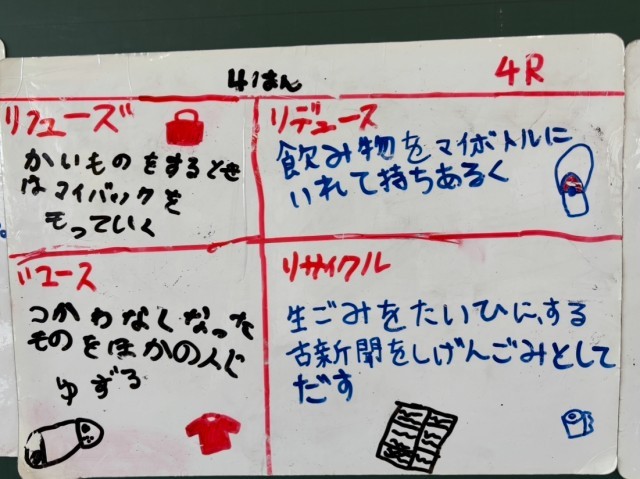 4はん
4R
リフューズ
かいものをするとき
はマイバックを
もっていく
リデュース
飲み物をマイボトルに
いれて持ちあるく
リユース
つかわなくなった
ものをほかの人に
ゆずる
リサイクル
生ごみをたいひにする
古新聞をしげんごみとして
だす